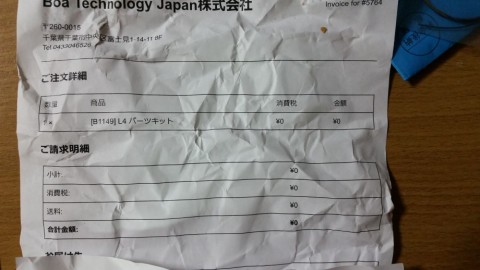 Boa Technology Japan株式会社
Invoice for #5764
〒260-0015
千葉県千葉市中央区富士見1-14-11 8F
ご注文詳細
数量 商品 消費税 金額
[B1149] L4 パーツキット ¥0 ¥0
ご請求明細
小計: ¥0
消費税: ¥0
送料: ¥0
合計金額: ¥0